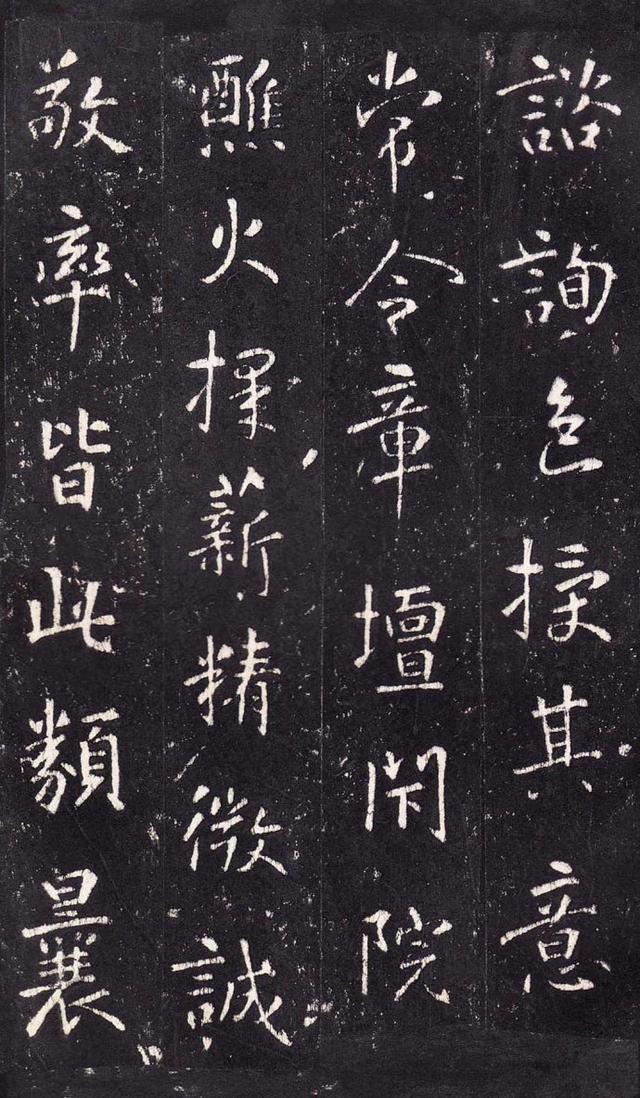 諮詢色授其意
常令章壇閇院
醮火採薪精微誠
敬率皆此類曩